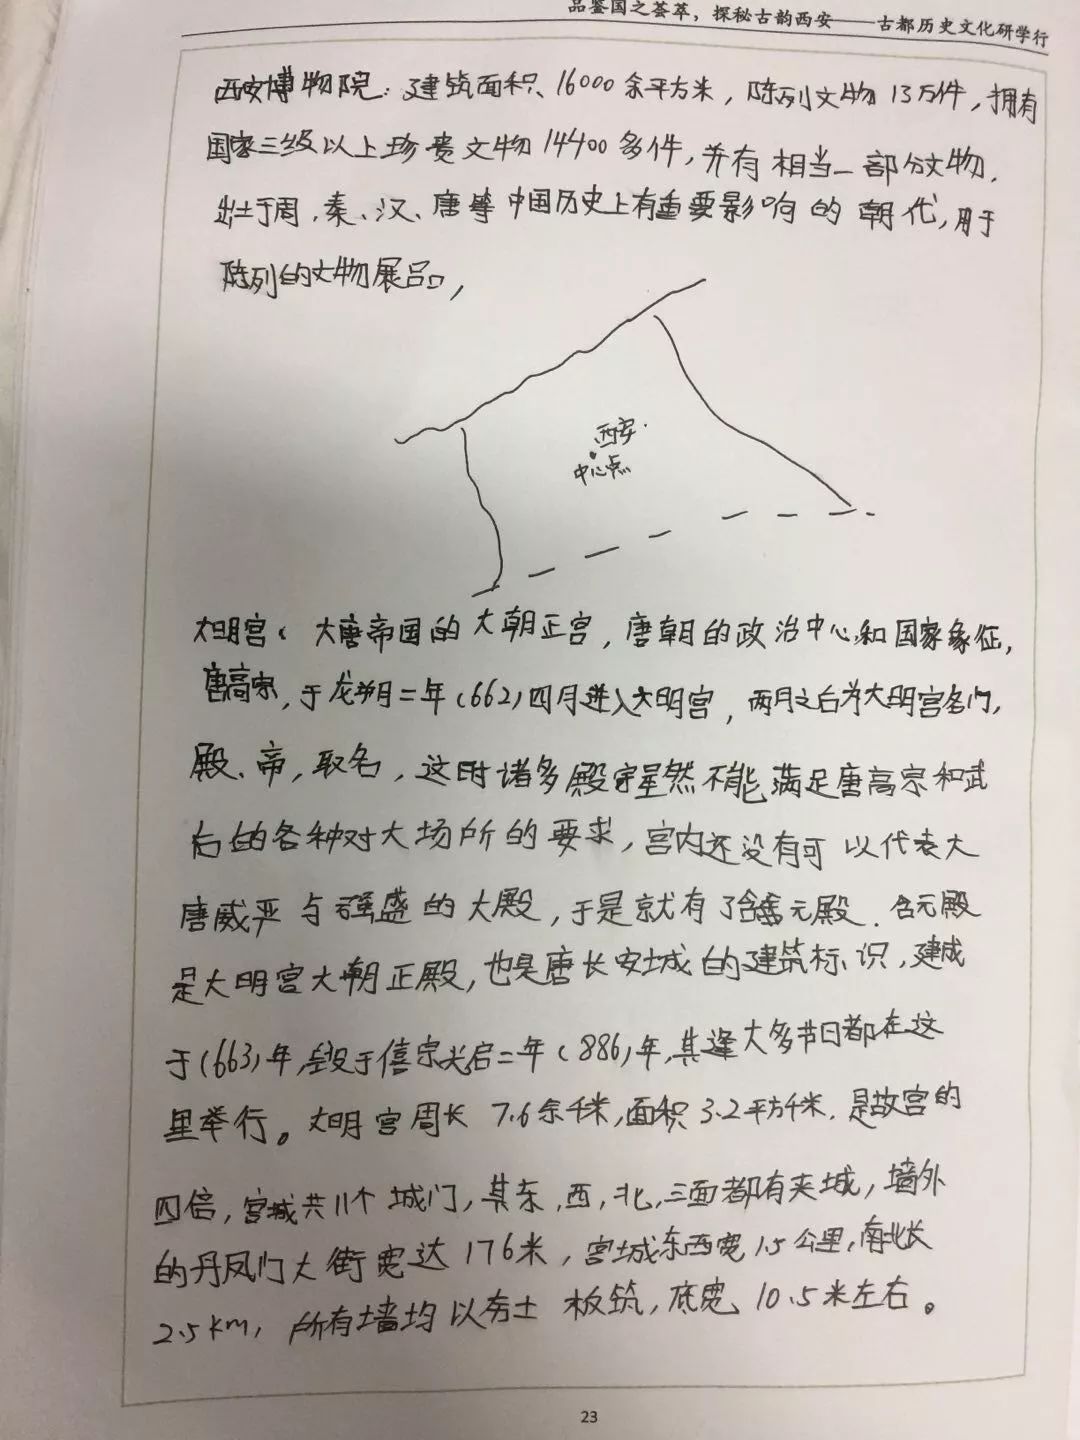 品鉴国之荟萃，探秘古韵西安——古都历史文化研学行
西安博物院：建筑面积、16000余平方米，陈列文物13万件，拥有
国家三级以上珍贵文物14400多件，并有相当一部分文物，
出土于周、秦、汉、唐等中国历史上有重要影响的朝代，用于
陈列的文物展品，
西安
中心点
大明宫：大唐帝国的大朝正宫，唐朝的政治中心和国家象征，
唐高宗，于龙朔二年（662）四月进入大明宫，两月之后为大明宫各门，
殿、帝，取名，这时诸多殿宇虽然不能满足唐高宗和武
后的各种对大场所的要求，宫内还没有可以代表大
唐威严与强盛的大殿，于是就有了含元殿．含元殿
是大明宫大朝正殿，也是唐长安城的建筑标识，建成
于（663）年，毁于僖宗光启二年（886）年，其逢大多节日都在这
里举行。大明宫周长7.6余千米，面积3.2平方千米．是故宫的
四倍，宫城共11个城门，其东，西，北，三面都有夹城，墙外
的丹凤门大街宽达176米，宫城东西宽1.5公里，南北长
2.5km，所有墙均以夯土板筑，底宽10.5米左右。
23